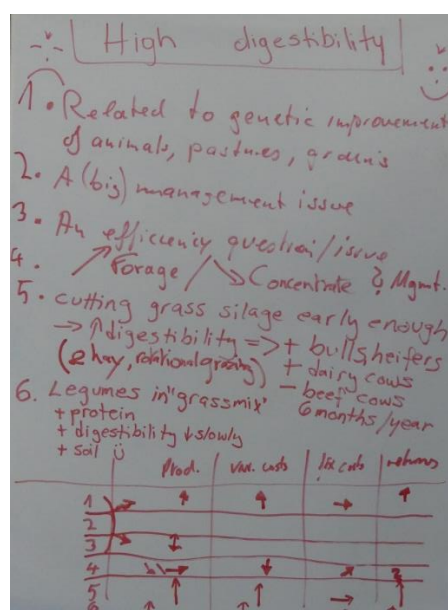 High digestibility
1. Related to genetic improvement
of animals, pastures, grains
2. A (big) management issue
3. An efficiency question/issue
4. ↗ Forage / ↘ Concentrate ? Mgmt.
5. cutting grass silage early enough
→ ↑ digestibility => + bulls, heifers
(& hay, rotational grazing) + dairy cows
- beef cows
6 months/year
6. Legumes in "grassmix"
+ protein
+ digestibility ↓ slowly
+ soil ü
Prod. var. costs fix costs returns
1 → ↑ ↑ → ↑
2
3 → ↕
4 → ↓
5 ↑ ↑ → ↑